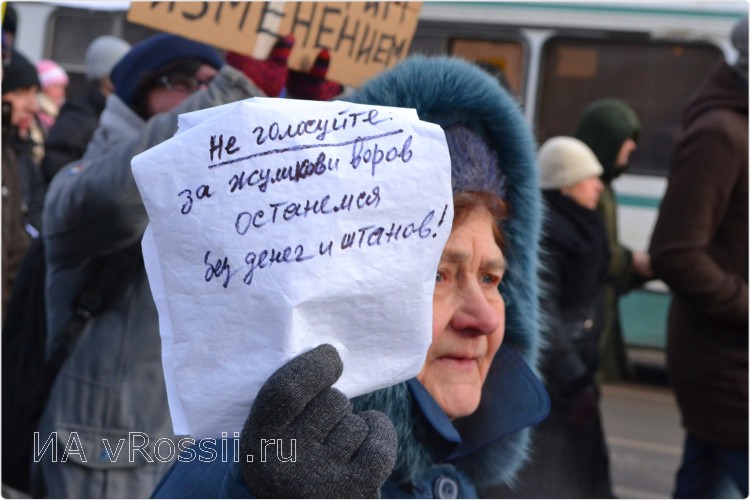 ИЗМЕНЕНИЕМ
Не голосуйте:
за жуликов и воров
останемся
без денег и штанов!
ИА vRossii.ru